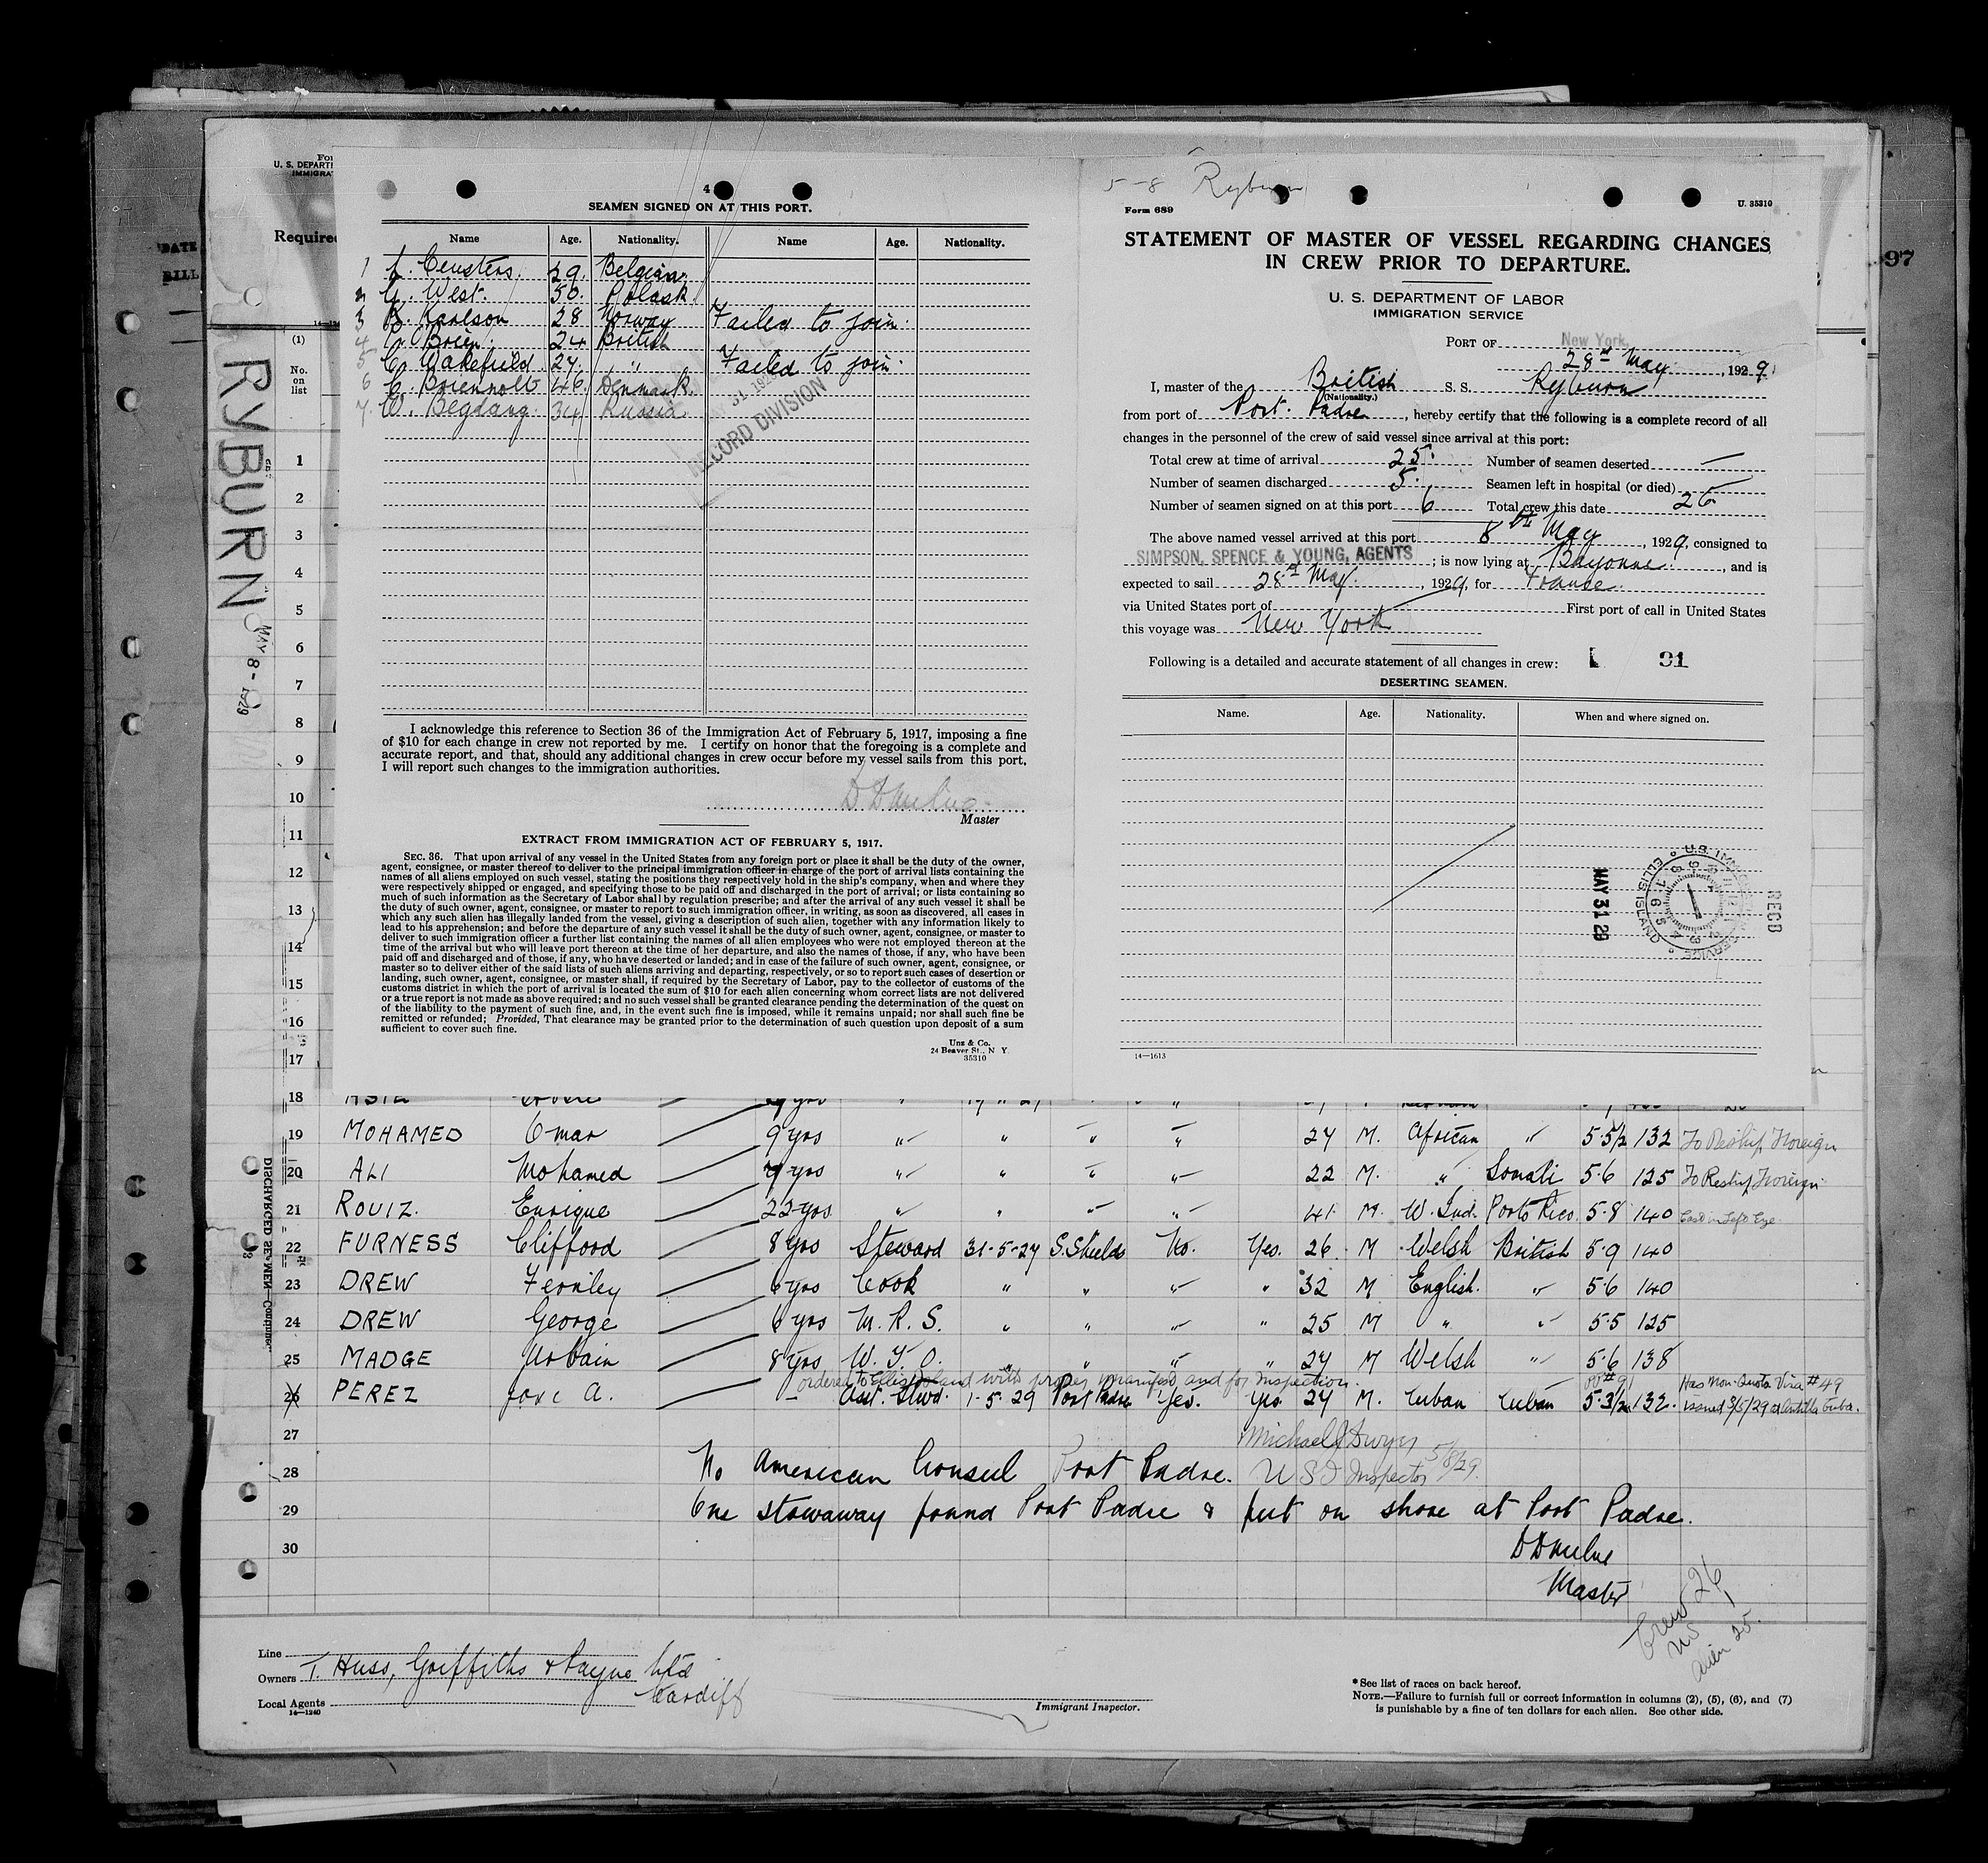 4
SEAMEN SIGNED ON AT THIS PORT.
Name Age. Nationality. Name Age. Nationality.
1 L. Ceusters. 29. Belgian.
2 G. West. 50. Polask.
3 B. Karlson 28 Norway Failed to join.
4 O'Brien. 24 British
5 C. Wakefield. 27. " Failed to join.
6 C. 46. Denmark.
7. W. Begdarg. 34 Russia.
MAY 31 192
RECORD DIVISION
I acknowledge this reference to Section 36 of the Immigration Act of February 5, 1917, imposing a fine
of $10 for each change in crew not reported by me. I certify on honor that the foregoing is a complete and
accurate report, and that, should any additional changes in crew occur before my vessel sails from this port,
I will report such changes to the immigration authorities.
D D Milne
Master
EXTRACT FROM IMMIGRATION ACT OF FEBRUARY 5, 1917.
SEC. 36. That upon arrival of any vessel in the United States from any foreign port or place it shall be the duty of the owner,
agent, consignee, or master thereof to deliver to the principal immigration officer in charge of the port of arrival lists containing the
names of all aliens employed on such vessel, stating the positions they respectively hold in the ship's company, when and where they
were respectively shipped or engaged, and specifying those to be paid off and discharged in the port of arrival; or lists containing so
much of such information as the Secretary of Labor shall by regulation prescribe; and after the arrival of any such vessel it shall be
the duty of such owner, agent, consignee, or master to report to such immigration officer, in writing, as soon as discovered, all cases in
which any such alien has illegally landed from the vessel, giving a description of such alien, together with any information likely to
lead to his apprehension; and before the departure of any such vessel it shall be the duty of such owner, agent, consignee, or master to
deliver to such immigration officer a further list containing the names of all alien employees who were not employed thereon at the
time of the arrival but who will leave port thereon at the time of her departure, and also the names of those, if any, who have been
paid off and discharged and of those, if any, who have deserted or landed; and in case of the failure of such owner, agent, consignee, or
master so to deliver either of the said lists of such aliens arriving and departing, respectively, or so to report such cases of desertion or
landing, such owner, agent, consignee, or master shall, if required by the Secretary of Labor, pay to the collector of customs of the
customs district in which the port of arrival is located the sum of $10 for each alien concerning whom correct lists are not delivered
or a true report is not made as above required; and no such vessel shall be granted clearance pending the determination of the quest on
of the liability to the payment of such fine, and, in the event such fine is imposed, while it remains unpaid; nor shall such fine be
remitted or refunded; Provided, That clearance may be granted prior to the determination of such question upon deposit of a sum
sufficient to cover such fine.
Unz & Co.
24 Beaver St., N Y.
35310
5-8 Ryburn
Form 689 U. 35310
STATEMENT OF MASTER OF VESSEL REGARDING CHANGES
IN CREW PRIOR TO DEPARTURE.
U. S. DEPARTMENT OF LABOR
IMMIGRATION SERVICE
PORT OF New York,
28th May, 1929
I, master of the British S. S. Ryburn
(Nationality.)
from port of Port Padre, hereby certify that the following is a complete record of all
changes in the personnel of the crew of said vessel since arrival at this port:
Total crew at time of arrival 25. Number of seamen deserted —
Number of seamen discharged 5. Seamen left in hospital (or died) —
Number of seamen signed on at this port 6 Total crew this date 26
The above named vessel arrived at this port 8th May, 1929, consigned to
SIMPSON, SPENCE & YOUNG, AGENTS; is now lying at Bayonne, and is
expected to sail 28th May, 1929, for France.
via United States port of First port of call in United States
this voyage was New York
Following is a detailed and accurate statement of all changes in crew: 91
DESERTING SEAMEN.
Name. Age. Nationality. When and where signed on.
MAY 31 29
U.S. IMMIGRATION SERVICE ELLIS ISLAND
REC'D
14—1613
U. S. DEPARTM
IMMIGRA
Required
97
DATE
BILL
(1)
No. on list
RYBURN
MAY 8 - 1929
DISCHARGED SEAMEN—Continued.
1
2
3
4
5
6
7
8
9
10
11
12
13
14
15
16
17
18
19 MOHAMED Omar 9 yrs " " " " 24 M. African " 5·5½ 132 To Reship Foreign
20 ALI Mohamed 4 yrs " " " " 22 M. " Somali 5·6 125 To Reship Foreign
21 ROUIZ. Enrique 22 yrs " " " " 41 M. W. Ind. Porto Rico. 5·8 140 Cast in Left Eye.
22 FURNESS Clifford 8 yrs Steward 31-5-27 S. Shields No. Yes. 26 M Welsh British 5·9 140
23 DREW Fernley 6 yrs Cook " " " " 32 M English. " 5·6 140
24 DREW George 6 yrs M. R. S. " " " " 25 M " " 5·5 125
25 MADGE Urbain 8 yrs W. T. O. " " " " 24 M Welsh " 5·6 138
ordered to Ellis Island with proper manifest and for Inspection.
26 PEREZ Jose A. - Asst. Stwd. 1-5-29 Port Padre Yes. Yes 24 M. Cuban Cuban 5·3½ 132. Has Non-Quota Visa #49
issued 3/5/29 at Antilla Cuba.
27 Michael J Dwyer 5/8/29.
28 No American Consul Port Padre. U S I Inspector
29 One stowaway found Port Padre & put on shore at Port Padre.
30 D D Milne
Master
Crew 26
US 1
Alien 25.
Line
Owners T. Huss, Griffiths & Payne Ltd
Cardiff
Local Agents
14—1240
Immigrant Inspector.
*See list of races on back hereof.
NOTE.—Failure to furnish full or correct information in columns (2), (5), (6), and (7)
is punishable by a fine of ten dollars for each alien. See other side.